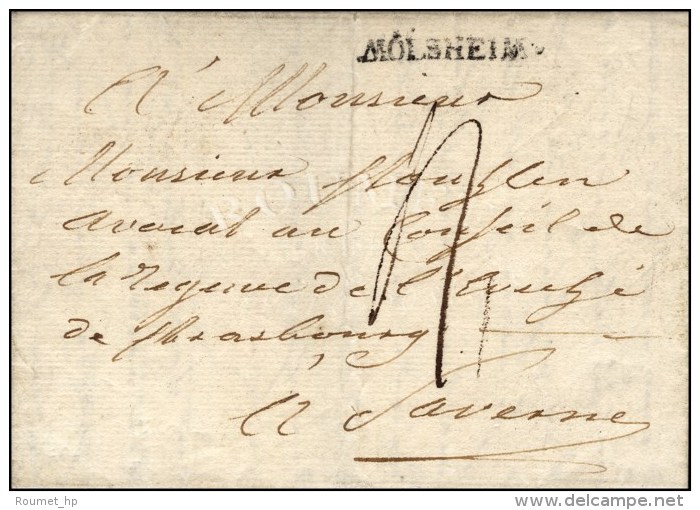 MOLSHEIM
A Monsieur
Monsieur
avocat au Conseil de
la Regence de l'Eveché
de Strasbourg
A Saverne
Roumet_hp
delcampe.net